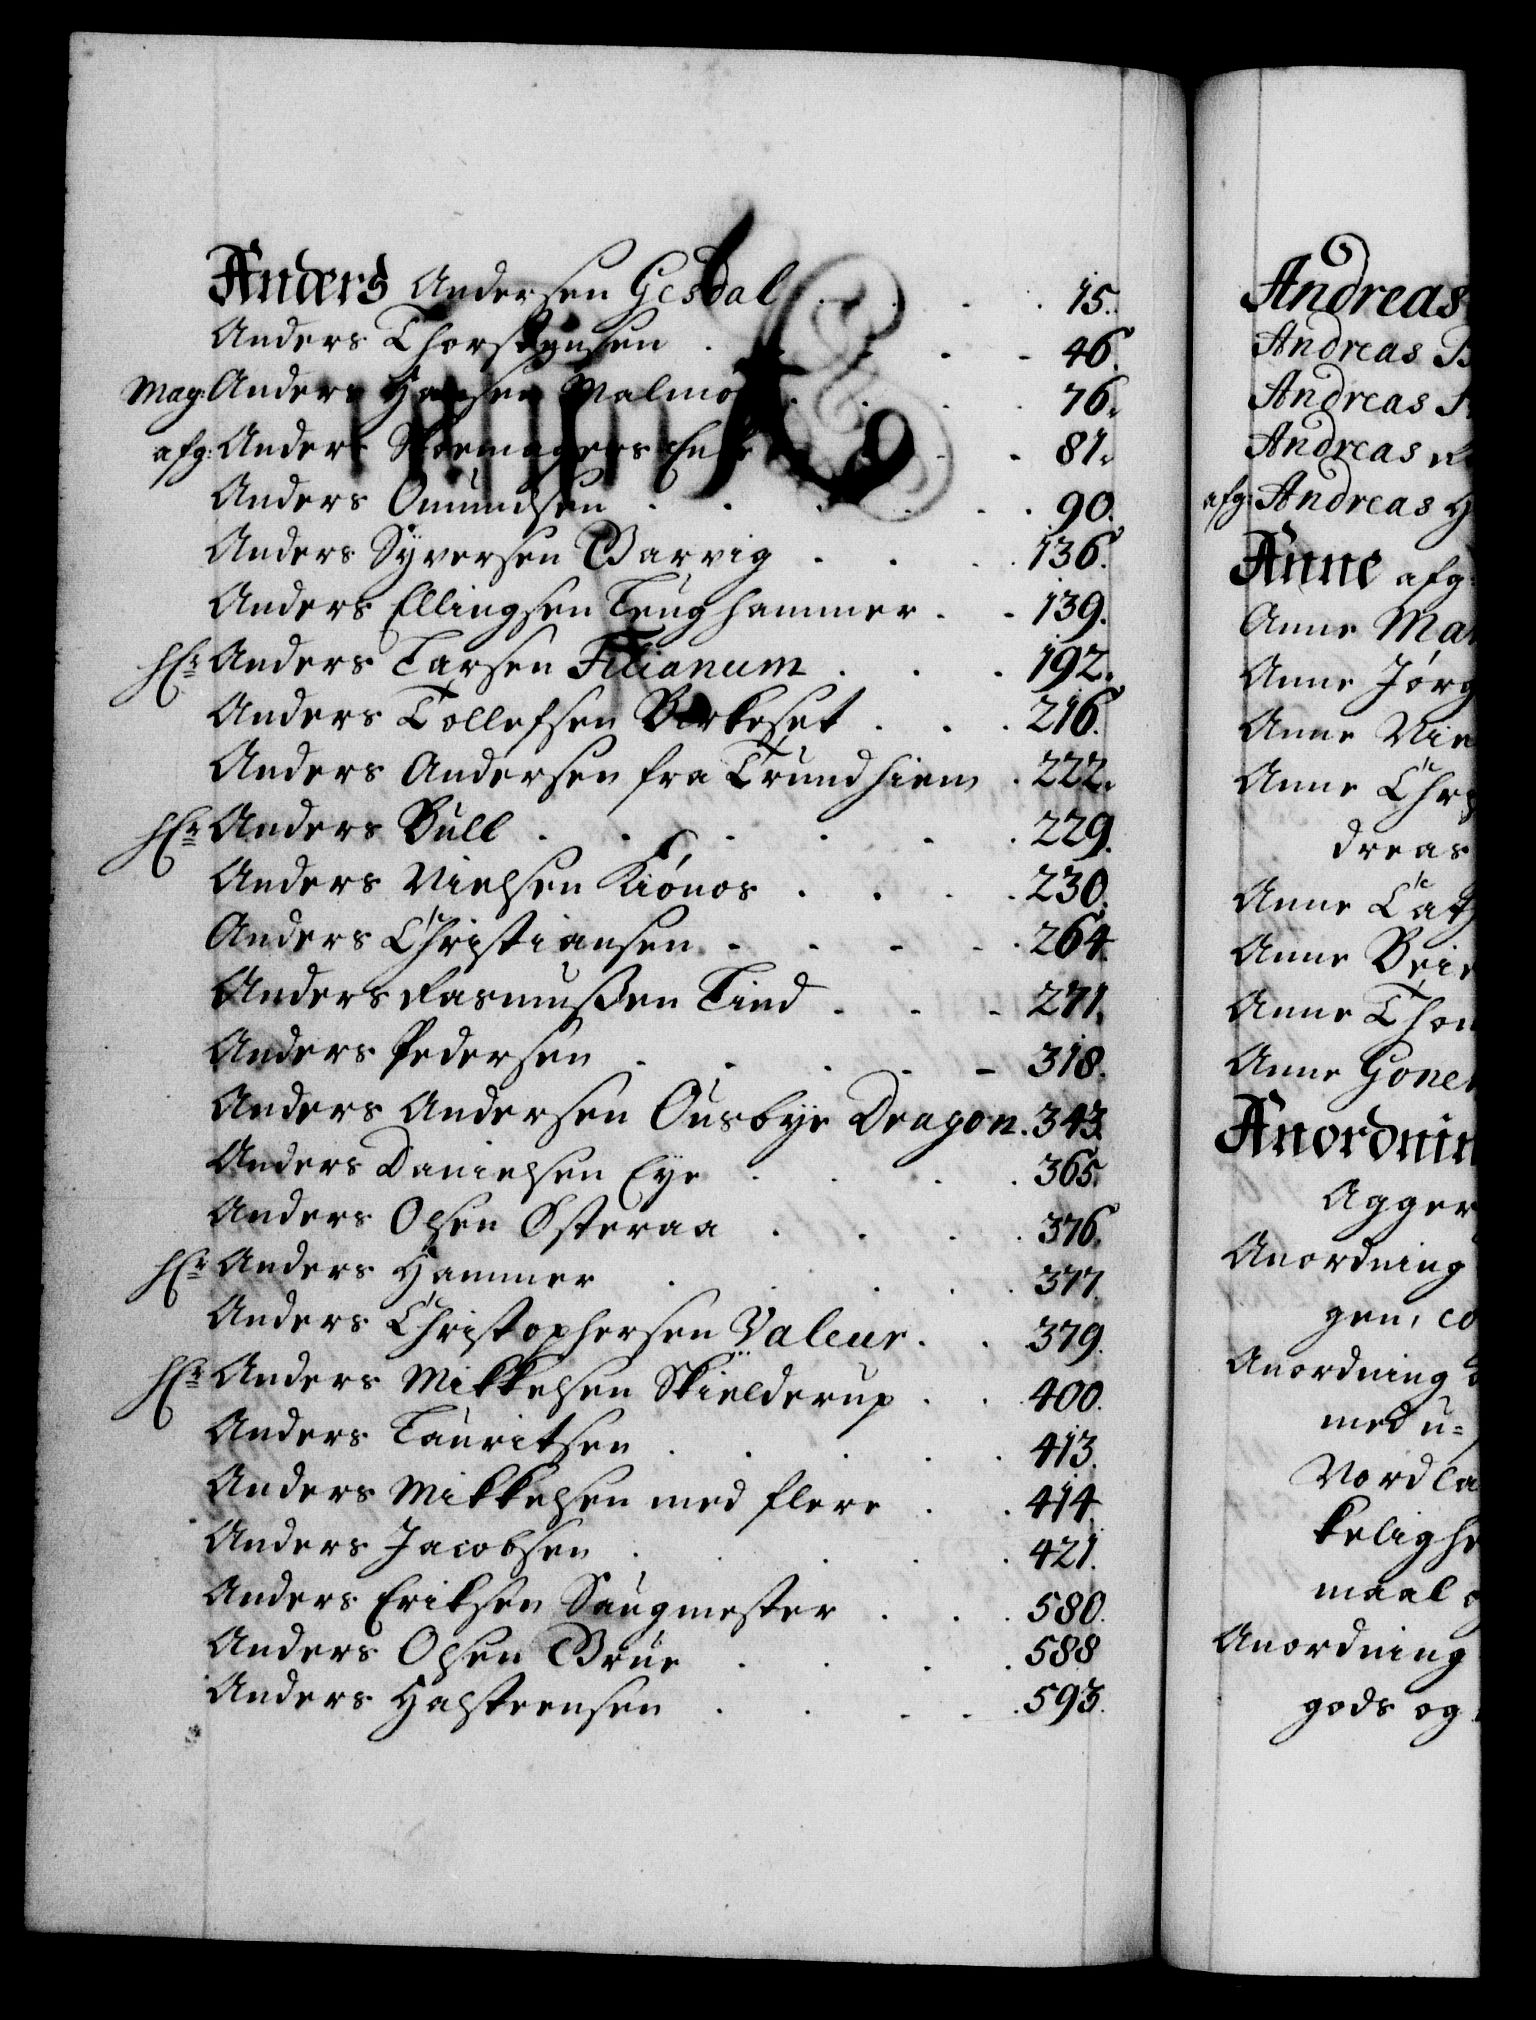 Anders Andersen Gesdal . . . 15.
Anders Thorstensen . . . 46.
Mag: Anders Hansen Malmøe . . . 76.
afg: Anders Skoemagers Enke . . . 81.
Anders Omundsen . . . . . 90.
Anders Syversen Barvig . . . 136.
Anders Ellingsen Leughammer . . 139.
Hr: Anders Larsen Filianum . . . 192.
Anders Tollefsen Birkeset . . . 216.
Anders Andersen fra Trundhiem . 222.
Hr: Anders Bull . . . . . . 229.
Anders Nielsen Kiónos . . . . 230.
Anders Christiansen . . . . . 264.
Anders Rasmussen Lind . . . 271.
Anders Pedersen . . . . . 318.
Anders Andersen Ousbye Dragon. 343.
Anders Danielsen Eye . . . . 365.
Anders Olsen Østeraa . . . . 376.
Hr: Anders Hammer . . . . . 377.
Anders Christophersen Valeur . . 379.
Hr: Anders Mikkelsen Skielderup . . 400.
Anders Lauritsen . . . . . 413.
Anders Mikkelsen med flere . . 414.
Anders Jacobsen . . . . . 421.
Anders Eriksen Saugmester . . . 580.
Anders Olsen Brue . . . . 588
Anders Halsteensen . . . . . 593.
Andreas
Andreas
Andreas
Andreas
afg: Andreas
Anne afg:
Anne
Anne Jörg
Anne
Anne
dreas
Anne
Anne
Anne
Anne
Anordnin
Agger
Anordning
gen, co
Anordning
med u=
Nordla
kelighe
maal
Anordning
gods og